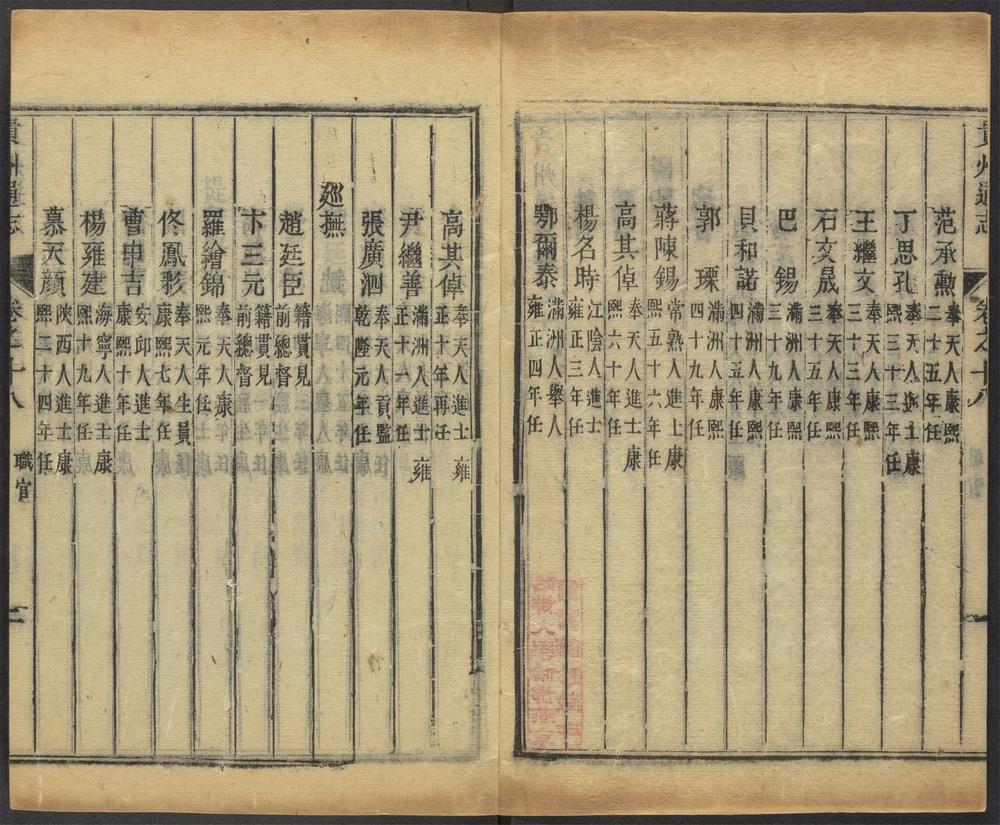 貴州通志
卷之十八
范承勲 奉天人康熙二十五年任
丁思孔 奉天人進士康熙三十三年任
王繼文 奉天人康熙三十三年任
石文晟 奉天人康熙三十五年任
巴錫 滿洲人康熙三十九年任
貝和諾 滿洲人康熙四十五年任
郭瑮 滿洲人康熙四十九年任
蔣陳錫 常熟人進士康熙五十六年任
高其倬 奉天人進士康熙六十年任
楊名時 江陰人進士雍正三年任
鄂爾泰 滿洲人舉人雍正四年任
高其倬 奉天人進士雍正十年再任
尹繼善 滿洲人進士雍正十一年任
張廣泗 奉天人貢監乾隆元年任
廵撫
趙廷臣 籍貫見前總督
卞三元 籍貫見前總督
羅繪錦 奉天人康熙元年任
佟鳳彩 奉天人生員康熙七年任
曹申吉 安邱人進士康熙十年任
楊雍建 海寧人進士康熙十九年任
慕天顔 陝西人進士康熙二十四年任
貴州通志
卷之十八
職官
二